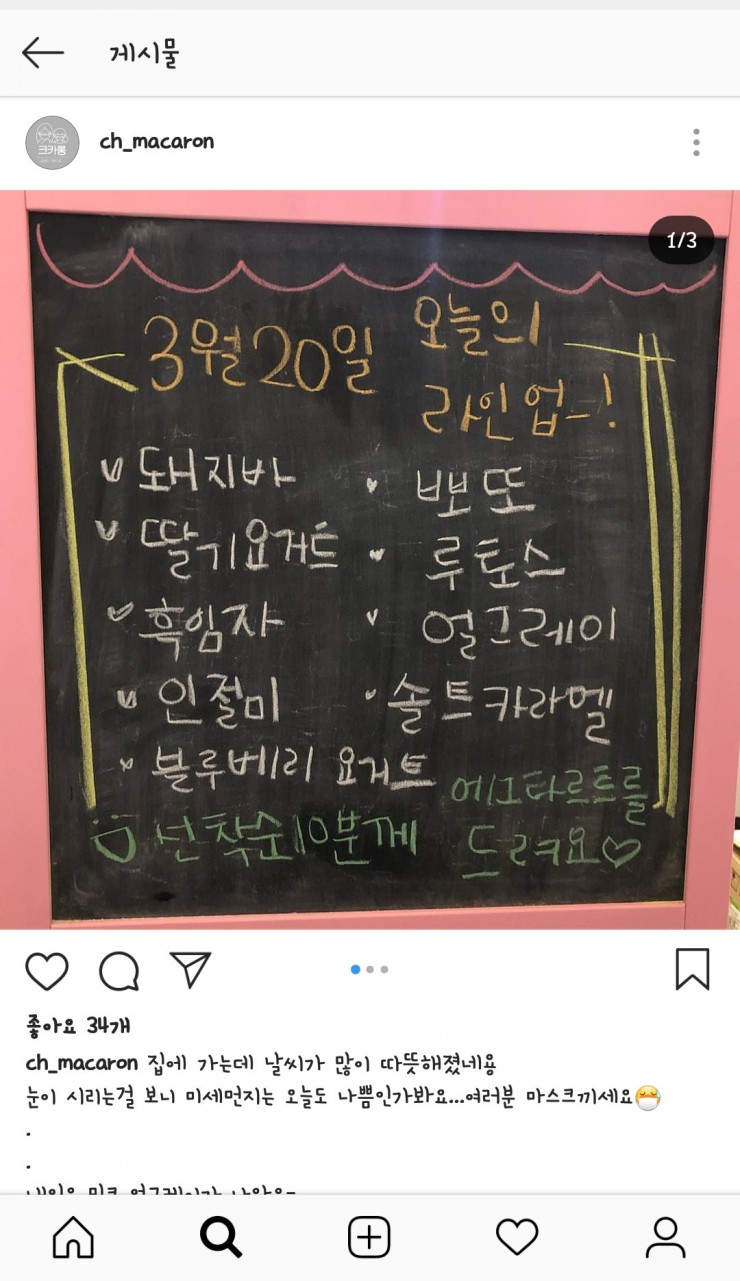 게시물
크카롱
ch_macaron
1/3
3월20일 오늘의
라인업-!
돼지바
뽀또
딸기요거트
루토스
흑임자
얼그레이
인절미
솔트카라멜
블루베리 요거트
선착순10분께 에그타르트를
드려요♡
좋아요 34개
ch_macaron 집에 가는데 날씨가 많이 따뜻해졌네용
눈이 시리는걸 보니 미세먼지는 오늘도 나쁨인가봐요...여러분 마스크끼세요😷
.
.